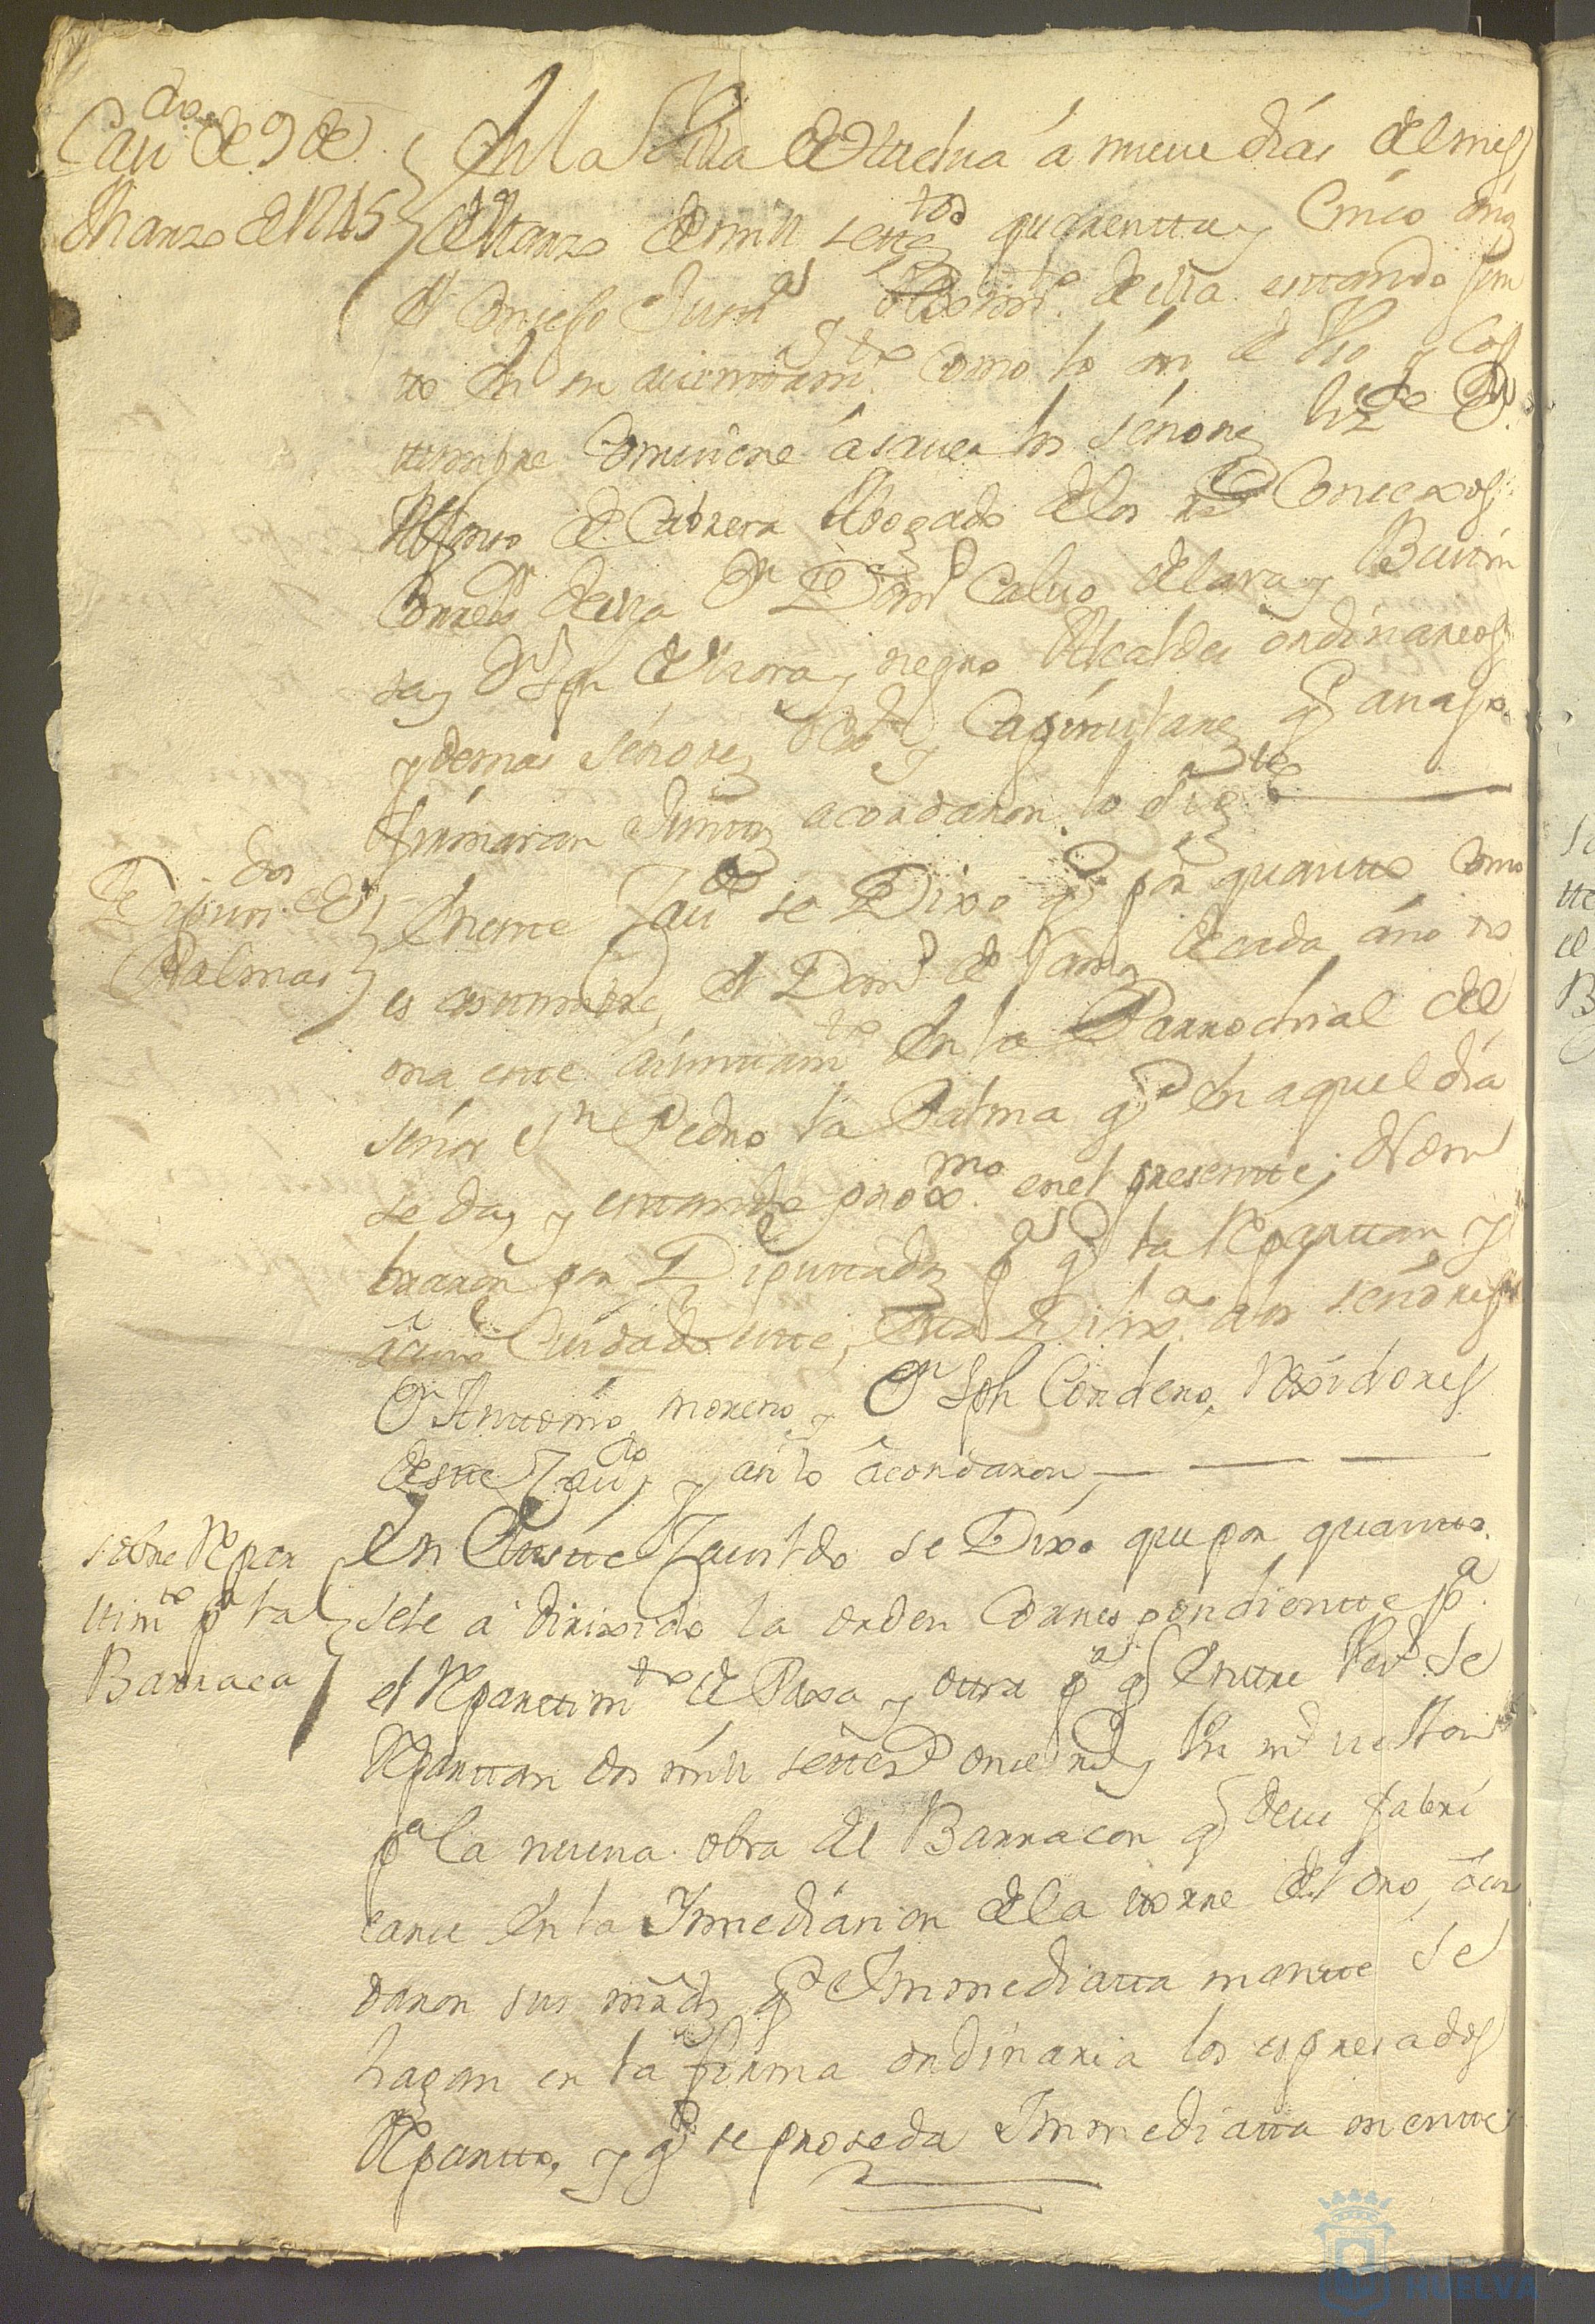 Cavdo de 9 de
Marzo de 1745
En la Villa de Huelva á nueve dias del mes
de Marzo de mill settetos quarentta y Cinco años
el Consejo Justa y Reximto de ella estando Jun
to en su aiuntamto como lo an de Uso y Cos
tumbre Combiene á saver los señores lizdo Dn
Alfonso de Cabrera Abogado de los Rs Consexos
Correxr de ella Dn Domo Calvo de lara y
Dn Jph de Mora y negro Alcaldes ordinareos
y demas señores Capitulares q avajo
firmaran Juntos acordaron lo sigte
Diputdos de
Palmas
En este Cavdo se Dixo q por quanto Como
es costumbre, el Domo de Ramos de cada año to
ma este aiuntamto En la Parrochial del
señor Sn Pedro la Palma q En aquel dia
se da, y estando proxmo en el presente, Nom
braron por Diputtados pa q la Repartan y
a cuio Cuidado este, Esta Dilixa a los señores
Dn Anttonio moreno, y Dn Jph Cordero, Rexidores
deste Cavdo, y asi lo acordaron
sobre Repar
timto pa la
Barraca
En Esste Cavildo se Dixo que por quanto
sele a dirixido la orden Correspondiente pa
el Reparttimto de Paxa y ottra pa q Entre Vezs se
Reparttan dos mill settezs onze rrs y mrs vellon
pa la nueva obra del Barracon q deve fabri
carse En la Inmediacion de la torre del oro, acor
daron sus mrds q Inmediatta mentte se
hagan en la forma ordinaria los espresados
Repartto, y q se proseda Inmediatta mentte
HUELVA